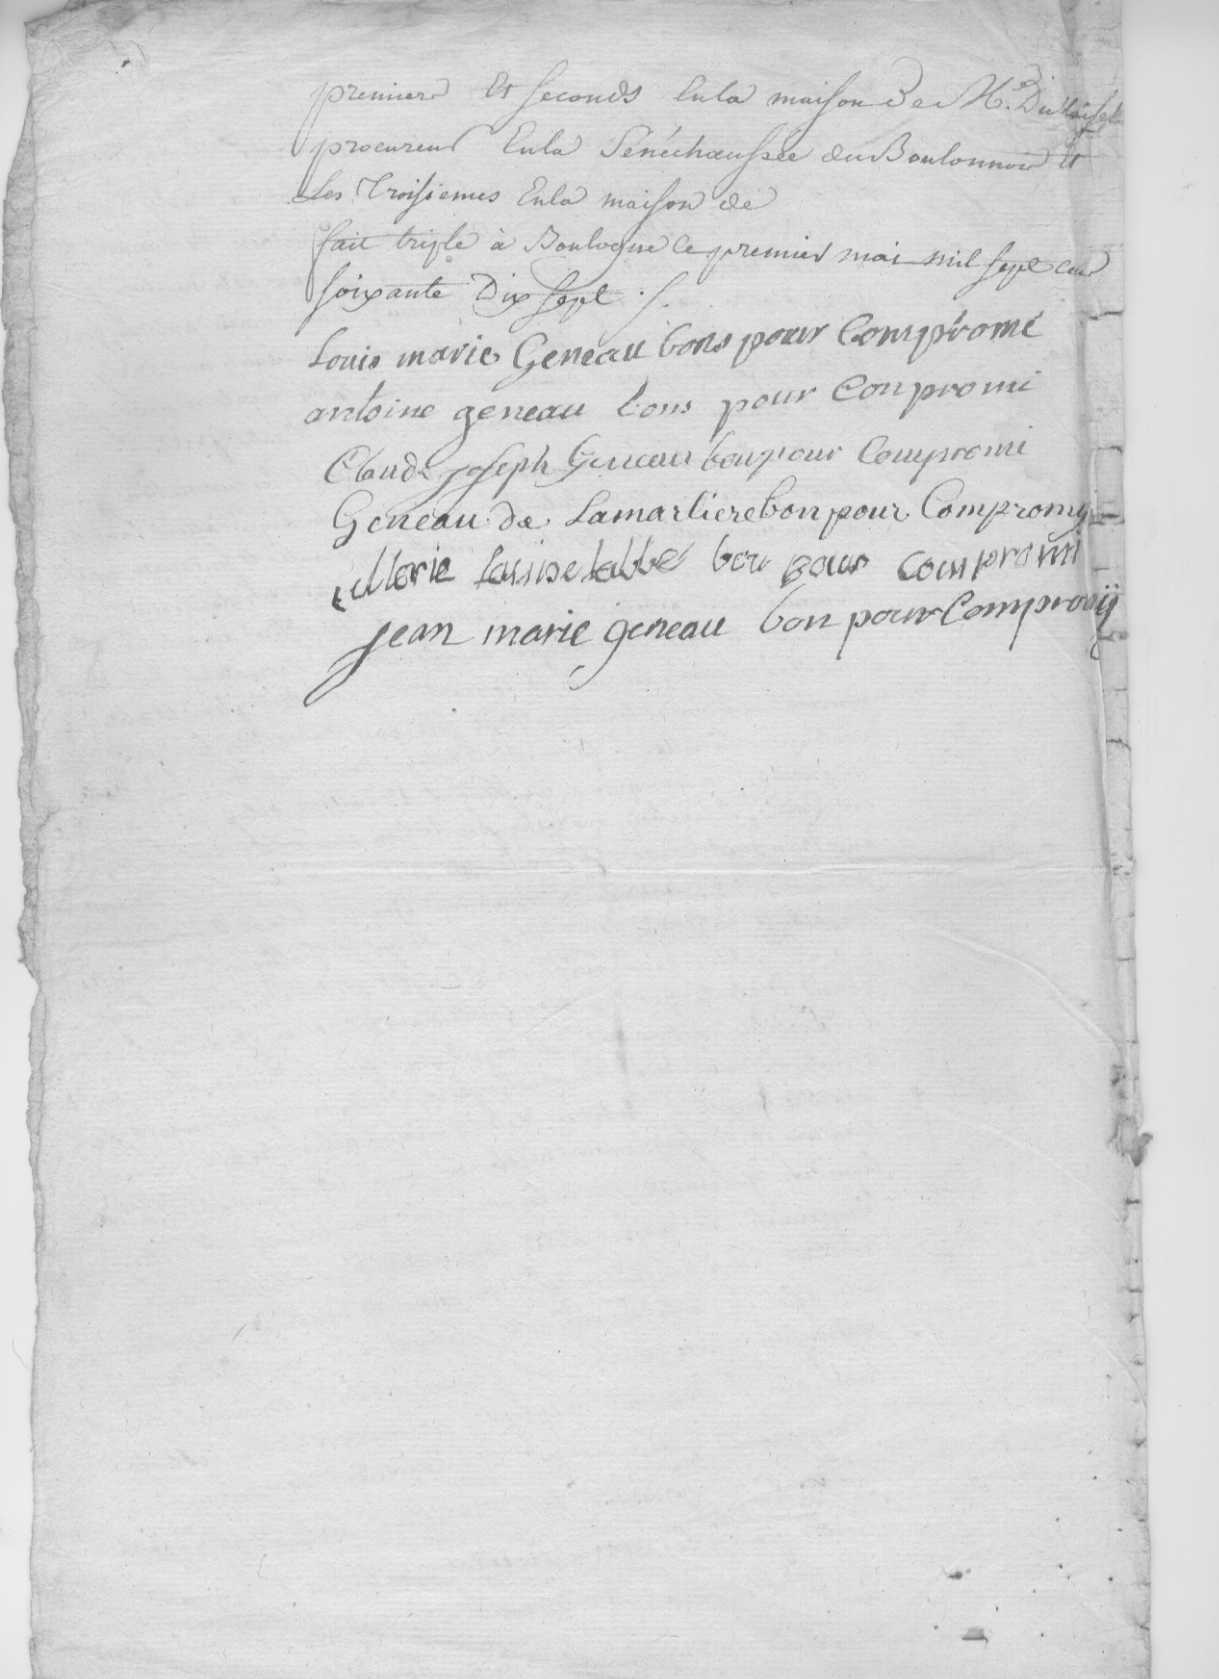 premiers Et seconds En la maison de M.e Dublaisel
procureur En la Sénéchaussée du Boulonnois et
Les Troisiemes En la maison de
fait triple à Boulogne le premier mai mil sept cent
soixante Dix sept ./.
Louis marie Geneau bons pour Compromé
antoine geneau bons pour Conpromi
Claude joseph Geneau bon pour Compromi
Geneau de Lamarliere bon pour Compromy
Marie Louise labbé bon pour compromi
jean marie geneau bon pour Compromij